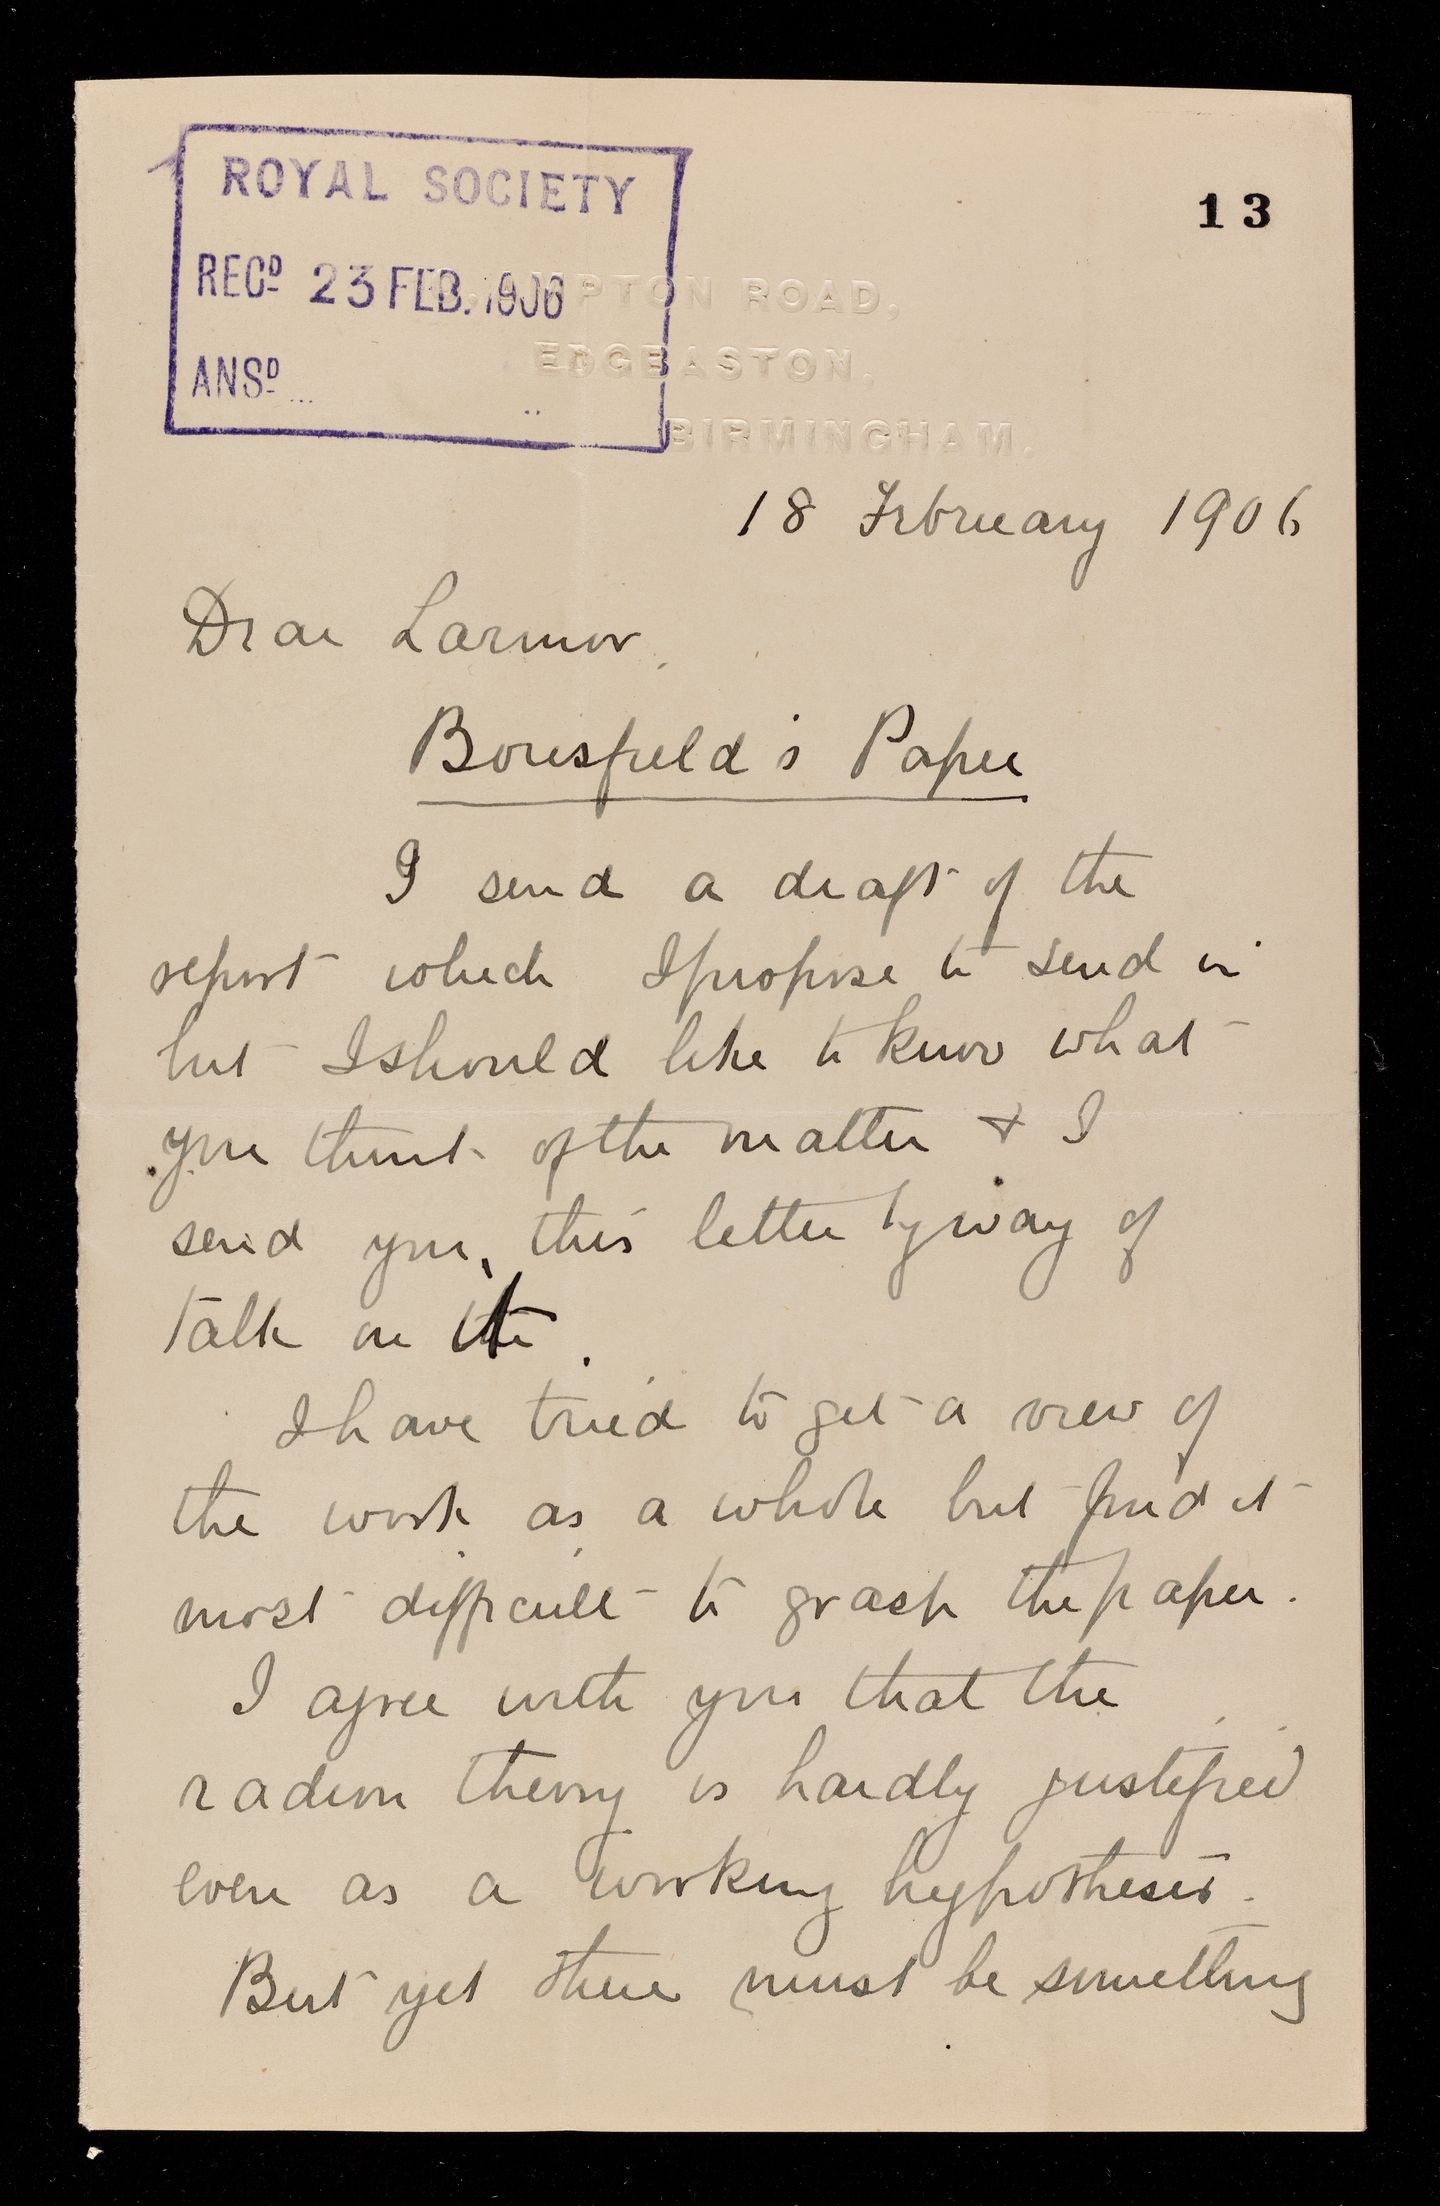 13
ROYAL SOCIETY
RECD 23 FEB. 1906
ANSD
PTON ROAD,
EDGBASTON,
BIRMINGHAM.
18 February 1906
Dear Larmor,
Bousfield's Paper
I send a draft of the
report which I propose to send in
but I should like to know what
you think of the matter & I
send you, this letter by way of
talk on it.
I have tried to get a view of
the work as a whole but find it
most difficult to grasp the paper.
I agree with you that the
radion theory is hardly justified
even as a working hypothesis.
But yet there must be something